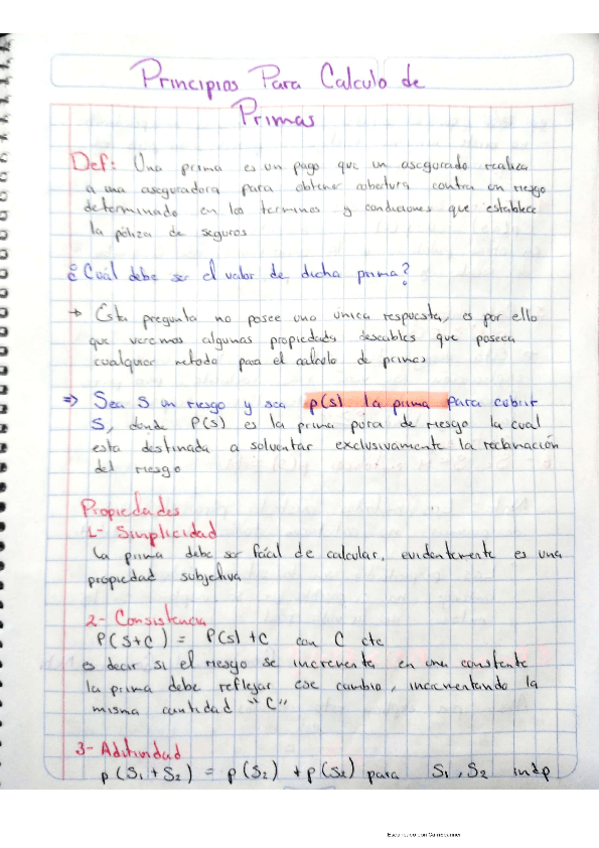 Principios Para Calculo de
Primas
Def: Una prima es un pago que un asegurado realiza
a una aseguradora para obtener cobertura contra un riesgo
determinado en los terminos y condiciones que establece
la póliza de seguros
¿Cuál debe ser el valor de dicha prima?
→ Esta pregunta no posee una única respuesta, es por ello
que veremos algunas propiedads deseables que poseea
cualquier metodo para el calculo de primas
⇒ Sea S un riesgo y sea p(s) la prima para cubrir
S, donde P(s) es la prima pura de riesgo la cual
esta destinada a solventar exclusivamente la reclamación
del riesgo
Propiedades
1- Simplicidad
la prima debe ser fácil de calcular, evidentemente es una
propiedad subjetiva
2- Consistencia
P(S+C) = P(s) + C con C cte
es decir si el riesgo se incrementa en una constante
la prima debe reflejar ese cambio, incrementando la
misma cantidad "C"
3- Aditividad
p(S1 + S2) = p(S2) + p(S2) para S1, S2 indp
Escaneado con CamScanner